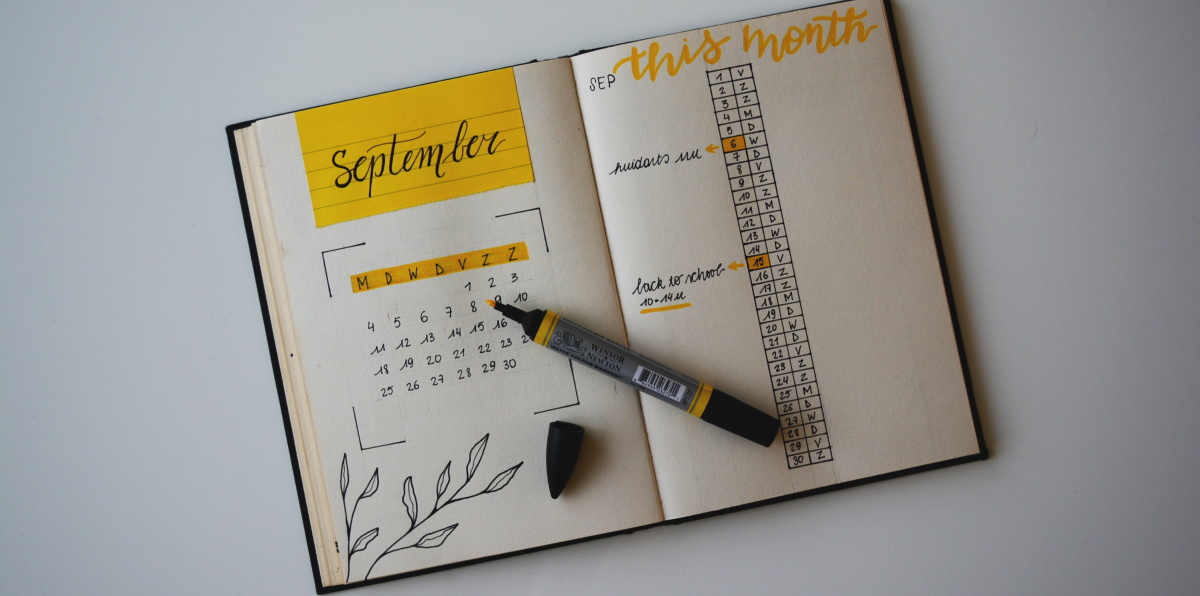 September
M D W D V Z Z
1 2 3
4 5 6 7 8 9 10
11 12 13 14 15 16
18 19 20 21 22 23 2
25 26 27 28 29 30
WINSOR
& NEWTON
this month
SEP
1 V
2 Z
3 Z
4 M
5 D
6 W
huidarts
7 D
8 V
9 Z
10 Z
11 M
12 D
13 W
14 D
15 V
back to school
10-14u
16 Z
17 Z
18 M
19 D
20 W
21 D
22 V
23 Z
24 Z
25 M
26 D
27 W
28 D
29 V
30 Z